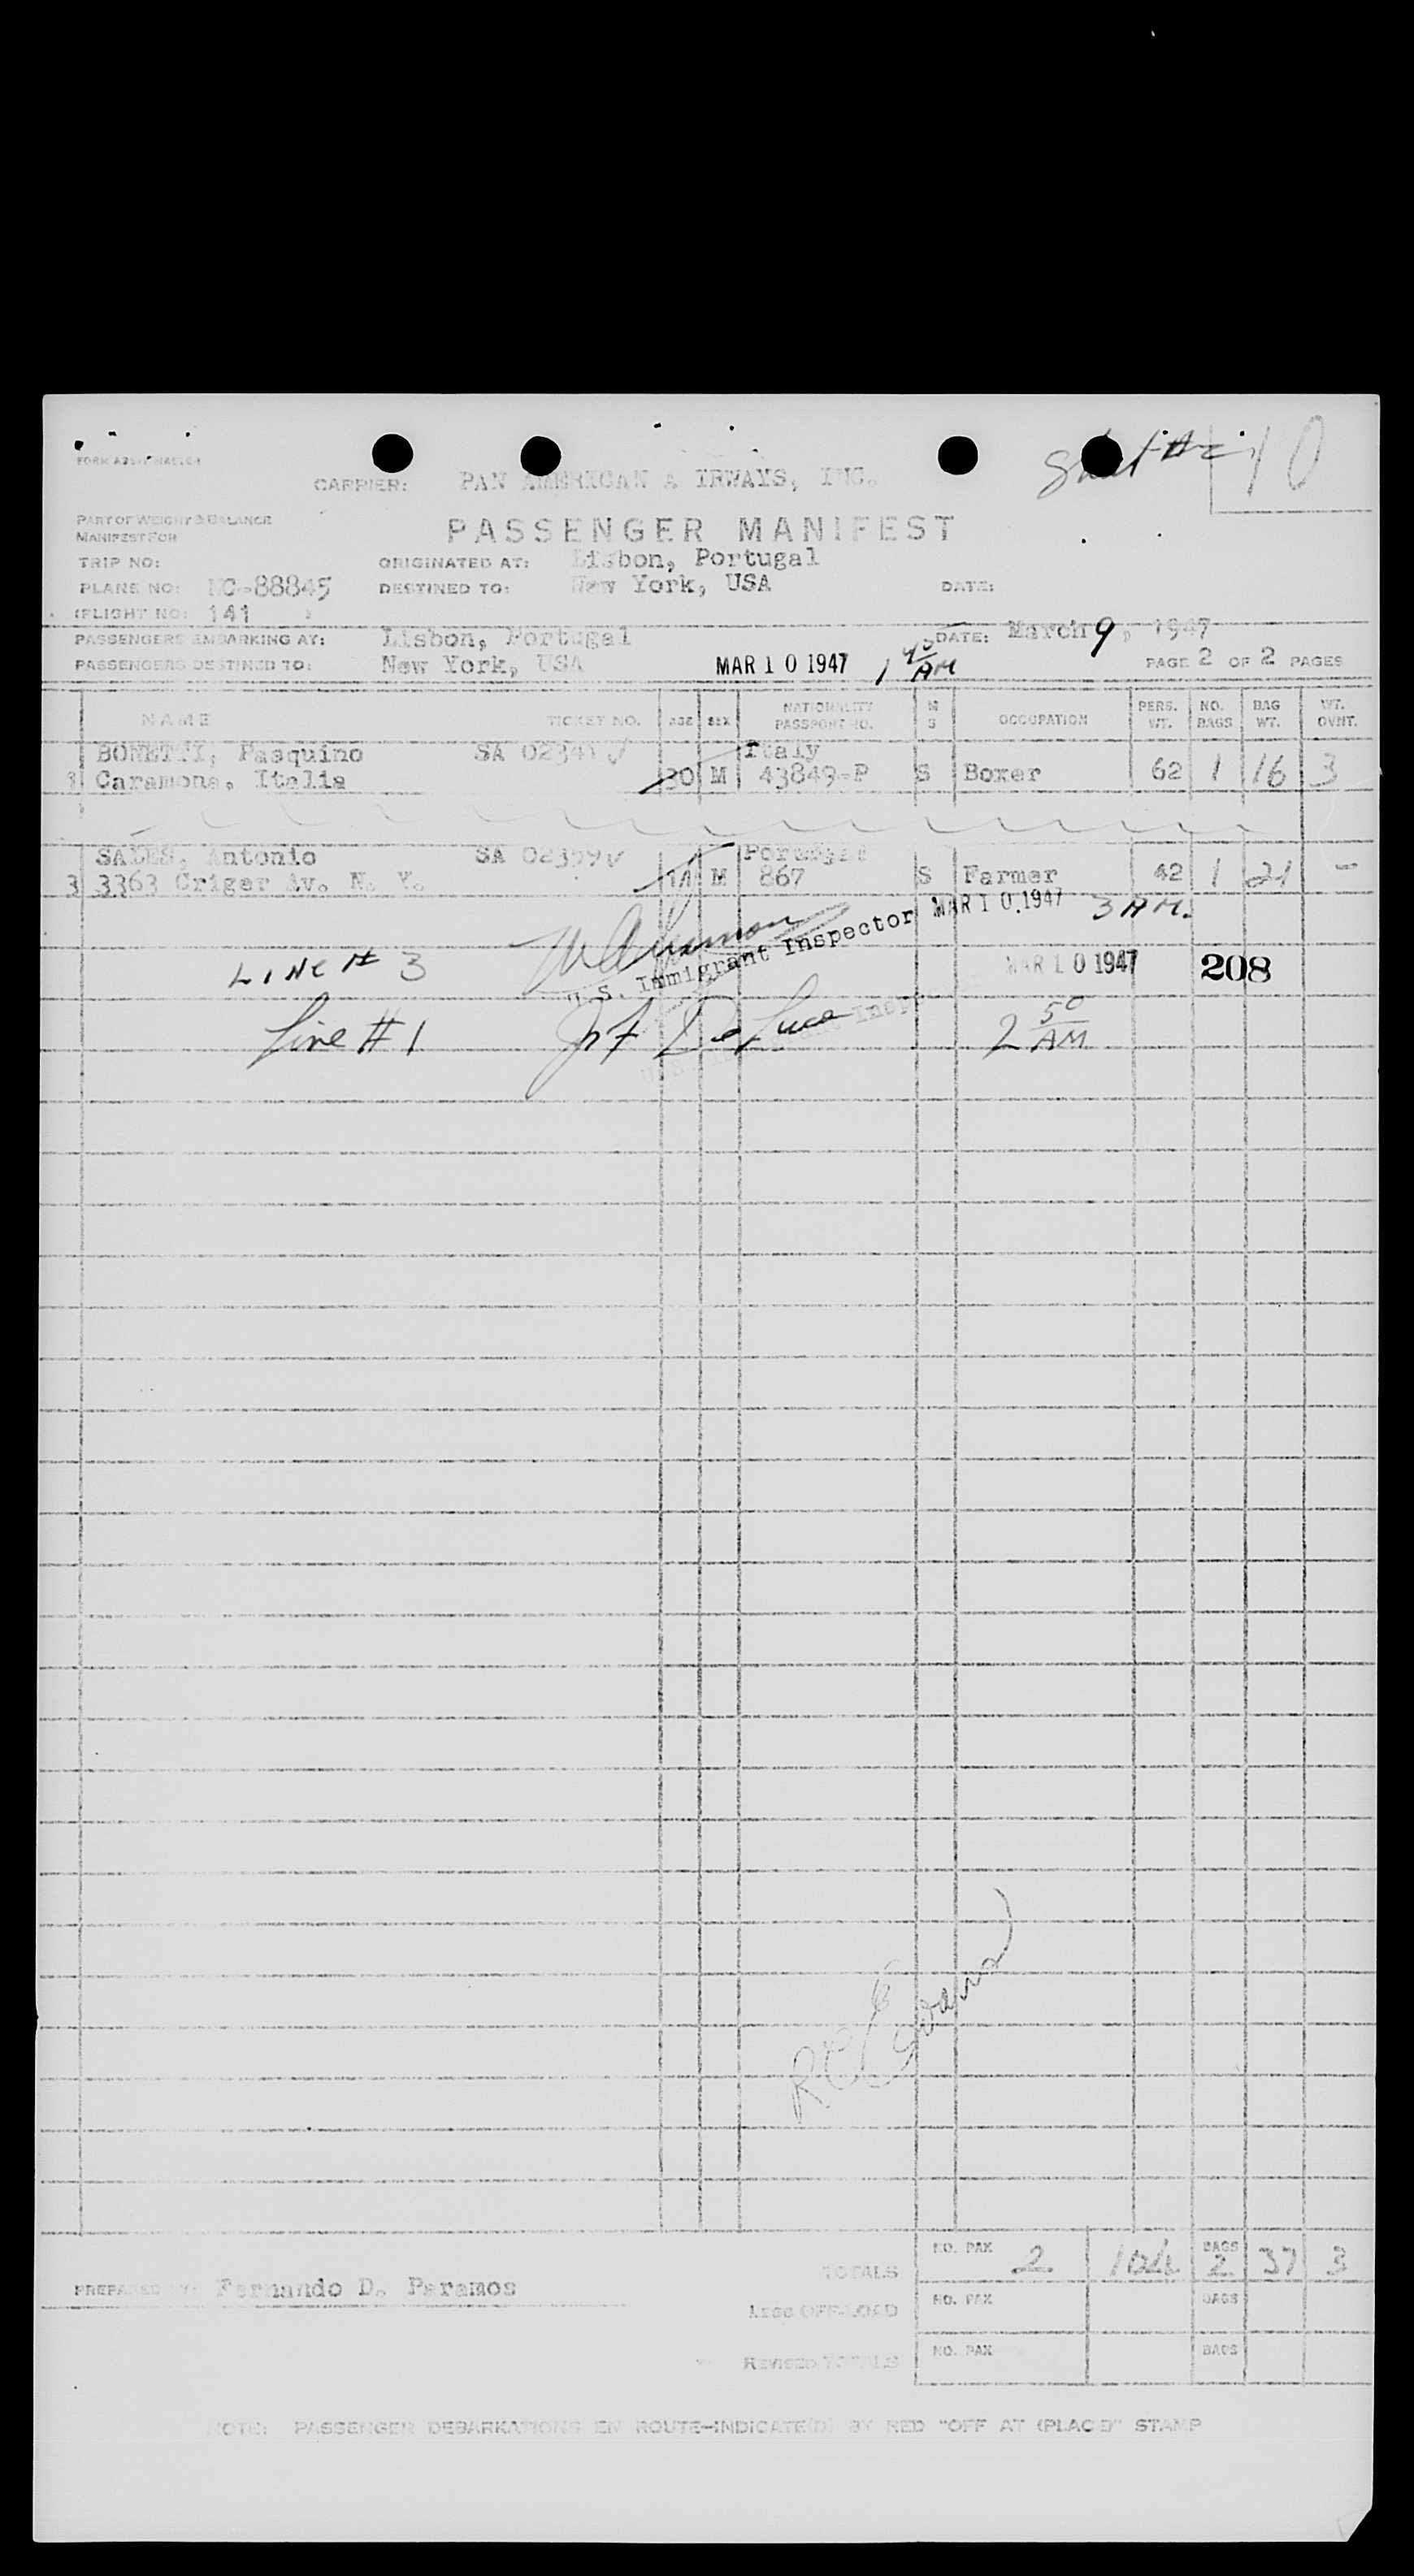 CARRIER: PAN AMERICAN A IRWAYS, INC.
10
PART OF WEIGHT & BALANCE
MANIFEST FOR
PASSENGER MANIFEST
TRIP NO: ORIGINATED AT: Lisbon, Portugal
PLANE NO: NC-88845 DESTINED TO: New York, USA DATE:
(FLIGHT NO: 141 )
PASSENGERS EMBARKING AT: Lisbon, Portugal DATE: March 9, 1947
PASSENGERS DESTINED TO: New York, USA MAR 10 1947 1 45 AM PAGE 2 OF 2 PAGES
NAME TICKET NO. AGE SEX NATIONALITY PASSPORT NO. M S OCCUPATION PERS. WT. NO. BAGS BAG WT. WT. OVHT.
BONETTI, Pasquino SA Italy
Caramona, Italia 30 M 43849-P S Boxer 62 1 16 3
SALES, Antonio SA Portugal
3 3363 Criger Av. N. Y. M 867 S Farmer 42 1 21 -
MAR 10 1947 3 AM.
U.S. Immigrant Inspector
LINE # 3 MAR 10 1947 208
Line # 1 De Luca 2 50 AM
TOTALS NO. PAX 2 104 BAGS 2 37 3
PREPARED BY: Fernando D. Paramos
LESS OFF-LOAD NO. PAX BAGS
REVISED TOTALS NO. PAX BAGS
NOTE: PASSENGER DEBARKATIONS EN ROUTE-INDICATE(D) BY RED "OFF AT (PLACE)" STAMP